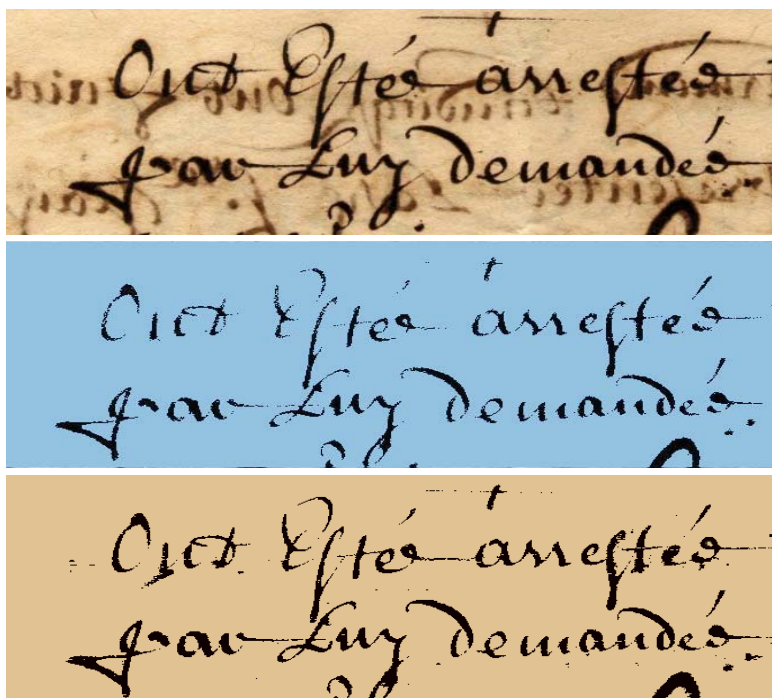 Ont Estés arrestés
par Luy demandés.
Ont Estés arrestés
par Luy demandés.
Ont Estés arrestés
par Luy demandés.